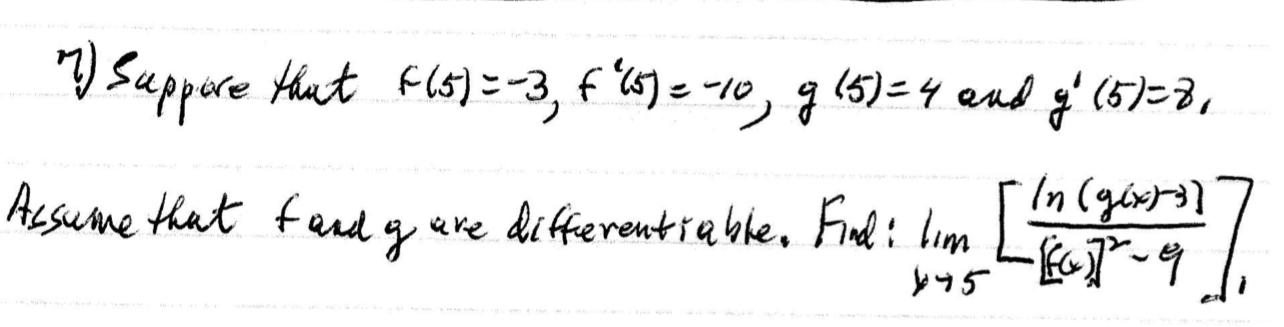 7) Suppose that f(5)=-3, f'(5)=-10, g(5)=4 and g'(5)=8.
Assume that f and g are differentiable. Find: lim x→5 [ln(g(x)-3) / [f(x)]² - 9].